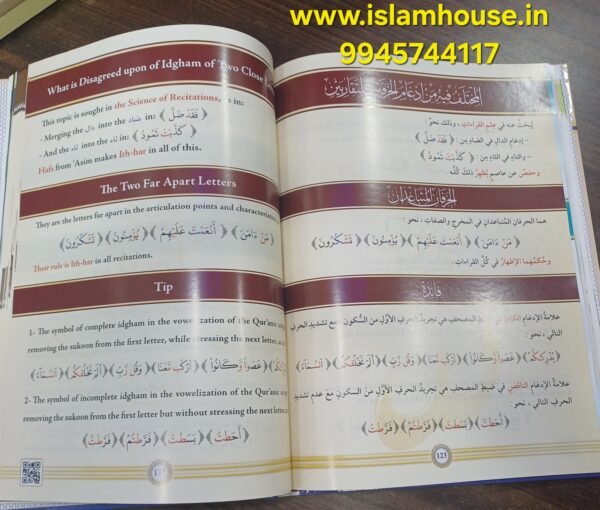 www.islamhouse.in
9945744117
What is Disagreed upon of Idgham of Two Close
This topic is sought in the Science of Recitations, as in:
- Merging the دال into the ضاد in: ﴿فَقَد ضَّلَّ﴾
- And the تاء into the ثاء in: ﴿كَذَّبَتْ ثَمُودُ﴾
Hafs from 'Asim makes Ith-har in all of this.
The Two Far Apart Letters
They are the letters far apart in the articulation points and characteristics,
﴿مَنْ ءَامَنَ﴾ ﴿أَنْعَمْتَ عَلَيْهِمْ﴾ ﴿يُؤْمِنُونَ﴾ ﴿تَشْكُرُونَ﴾
Their rule is Ith-har in all recitations.
Tip
1- The symbol of complete idgham in the vowelization of the Qur'anic
removing the sukoon from the first letter, while stressing the next letter,
﴿أَلَمْ نَخْلُقكُّم﴾ ﴿وَقُل رَّبِّ﴾ ﴿ٱرْكَب مَّعَنَا﴾ ﴿عَصَوا وَّكَانُوا﴾
2- The symbol of incomplete idgham in the vowelization of the Qur'anic
removing the sukoon from the first letter but without stressing the next letter,
﴿أَحَطتُ﴾ ﴿بَسَطتَ﴾ ﴿فَرَّطتُمْ﴾ ﴿فَرَّطتُ﴾
المختلف فيه من إدغام الحرفين المتقاربين
يُبحثُ عنه في عِلمِ القراءاتِ، وذلك نحوُ:
- إدغامِ الدالِ في الضادِ مِن: ﴿فَقَد ضَّلَّ﴾
- والتاءِ في الثاءِ مِن: ﴿كَذَّبَتْ ثَمُودُ﴾
وحفصٌ عن عاصمٍ يُظهِرُ ذلكَ كُلَّه
الحرفان المتباعدان
هما الحرفانِ المُتباعدانِ في المخرجِ والصفاتِ، نحو:
﴿مَنْ ءَامَنَ﴾ ﴿أَنْعَمْتَ عَلَيْهِمْ﴾ ﴿يُؤْمِنُونَ﴾ ﴿تَشْكُرُونَ﴾
وحُكمُهما الإظهارُ في كُلِّ القراءاتِ.
فائدة
علامةُ الإدغامِ الكاملِ في ضبطِ المصحفِ هي تجريدُ الحرفِ الأوَّلِ من السُّكونِ مع تشديدِ الحرفِ
التالي، نحو:
﴿يُدْرِككُّمُ﴾ ﴿عَصَوا وَّكَانُوا﴾ ﴿ٱرْكَب مَّعَنَا﴾ ﴿وَقُل رَّبِّ﴾ ﴿أَلَمْ نَخْلُقكُّم﴾ ﴿ٱلسَّمَآءُ﴾
علامةُ الإدغامِ الناقصِ في ضبطِ المصحفِ هي تجريدُ الحرفِ الأوَّلِ منَ السكونِ مع عدمِ تشديدِ
الحرفِ التالي، نحو:
﴿أَحَطتُ﴾ ﴿بَسَطتَ﴾ ﴿فَرَّطتُمْ﴾ ﴿فَرَّطتُ﴾
123